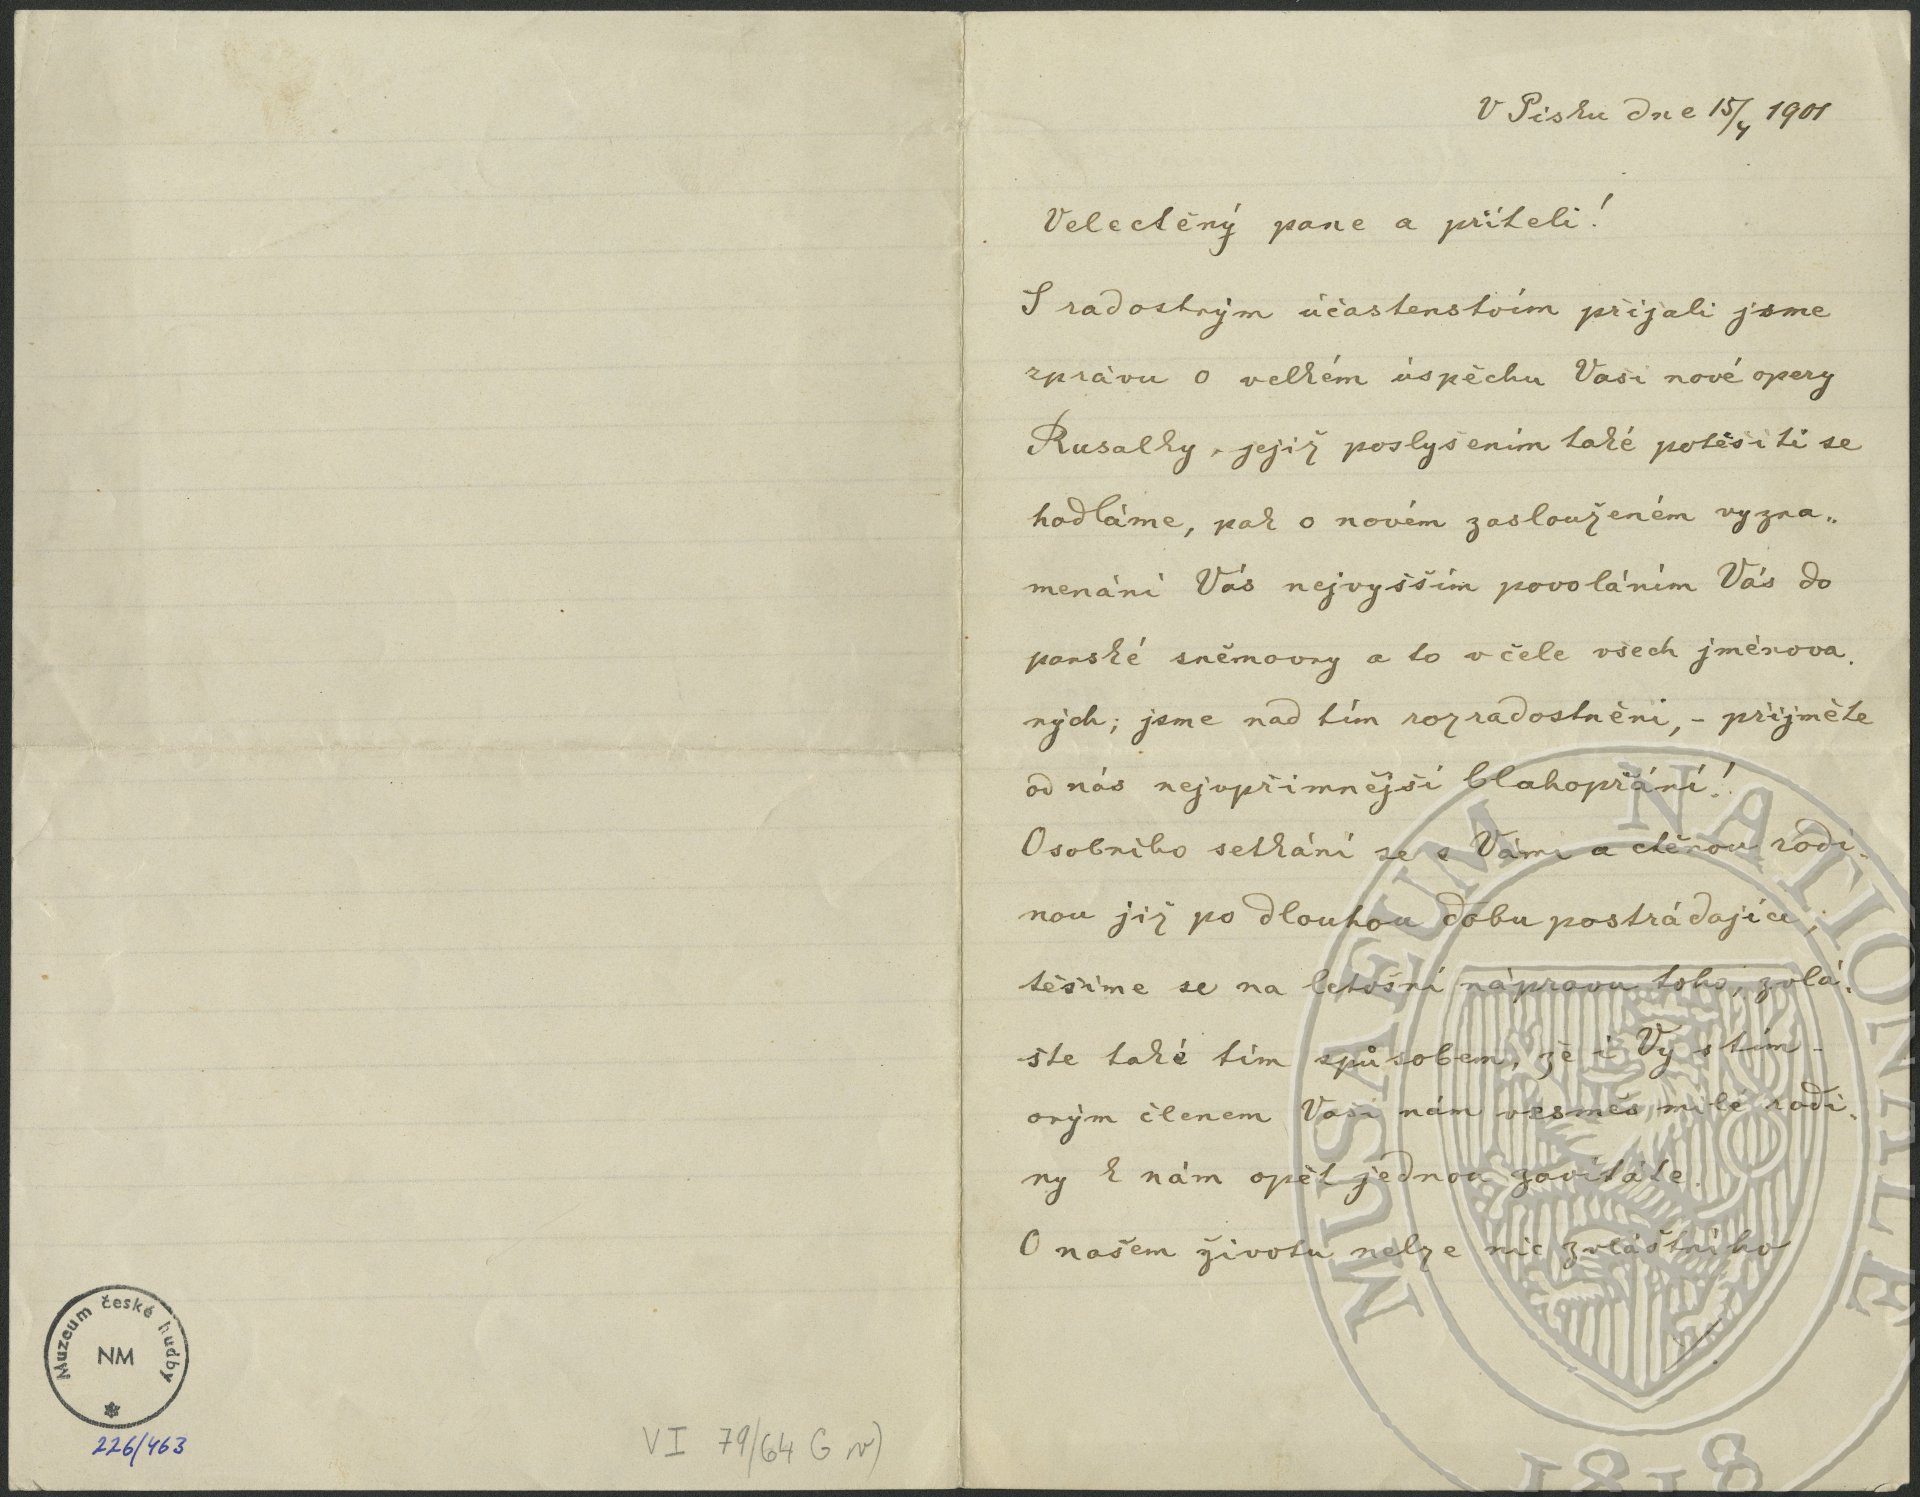 V Písku dne 15/4 1901
Velectěný pane a příteli!
S radostným účastenstvím přijali jsme
zprávu o velkém úspěchu Vaší nové opery
Rusalky, jejíž poslyšením také potěšiti se
hodláme, pak o novém zaslouženém vyzna„
menání Vás nejvyšším povoláním Vás do
panské sněmovny a to v čele všech jménova.
ných; jsme nad tím rozradostněni, - přijměte
od nás nejupřimnější blahopřání!
Osobního setkání se s Vámi a ctěnou rodi.
nou již po dlouhou dobu postrádajíce,
těšíme se na letošní nápravu toho, zvlá.
ště také tím spůsobem, že i Vy s tím-
oným členem Vaší nám vesměs milé rodi.
ny k nám opět jednou zavítáte.
O našem životu nelze nic zvláštního
Muzeum české hudby
NM
226/463
VI 79/64 G
MUSAEUM NATIONALE
1818